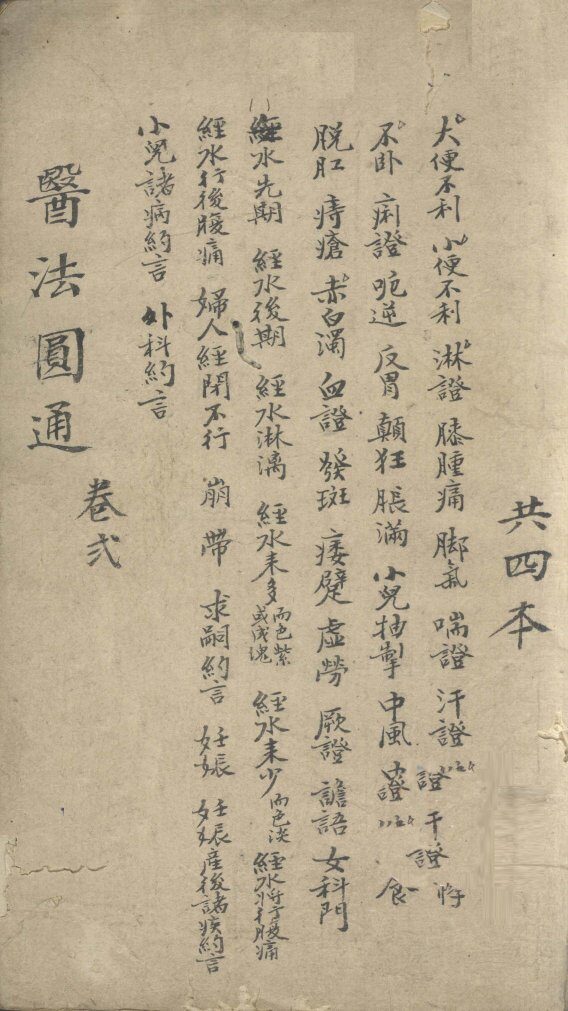 共四本
大便不利 小便不利 淋證 膝腫痛 脚氣 喘證 汗證
證 干證
不卧 痢證 呃逆 反胃 顛狂 脹滿 小兒抽掣 中風 證 食
脱肛 痔瘡 赤白濁 血證 發斑 痿躄 虛勞 厥證 譫語 女科門
經水先期 經水後期 經水淋漓 經水来多而色紫或成塊 經水来少而色淡 經水將行腹痛
經水行後腹痛 婦人經閉不行 崩 帶 求嗣約言 妊娠 妊娠產後諸疾約言
小兒諸病約言 外科約言
醫法圓通 卷弍